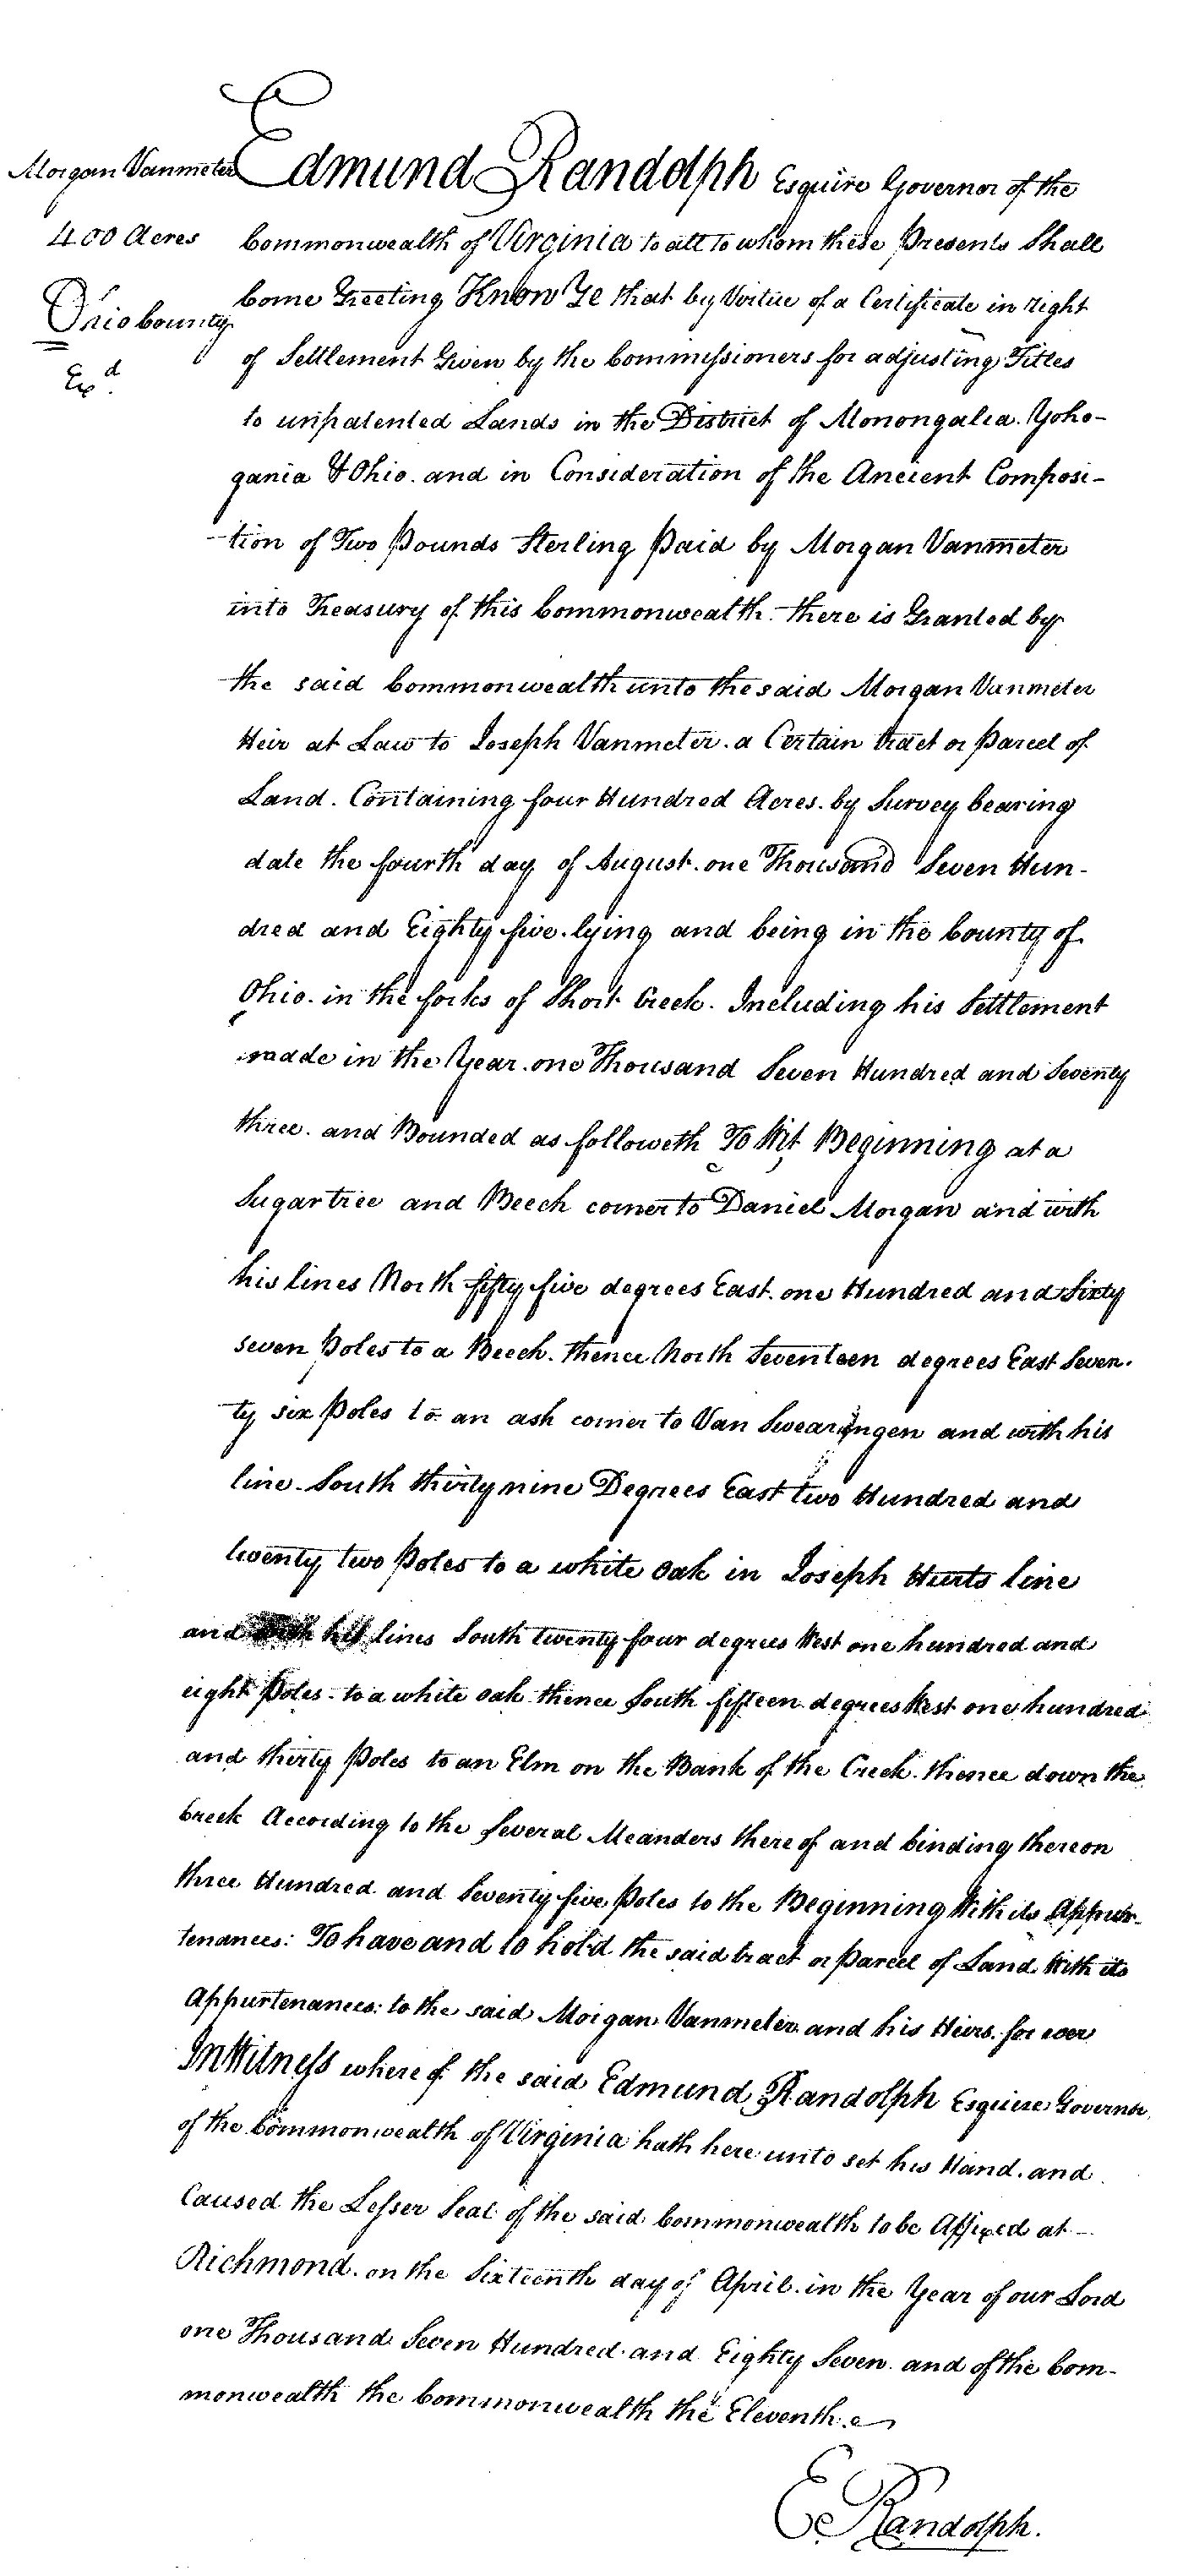 Morgan Vanmeter
400 Acres
Ohio County
Exd.
Edmund Randolph Esquire Governor of the
Commonwealth of Virginia to all to whom these Presents Shall
Come Greeting Know Ye that by Virtue of a Certificate in right
of Settlement Given by the Commissioners for adjusting Titles
to unpatented Lands in the District of Monongalia. Yoho-
gania & Ohio. and in Consideration of the Ancient Composi-
-tion of Two Pounds Sterling Paid by Morgan Vanmeter
into Treasury of this Commonwealth. there is Granted by
the said Commonwealth unto the said Morgan Vanmeter
Heir at Law to Joseph Vanmeter. a Certain tract or Parcel of
Land. Containing four Hundred Acres. by Survey bearing
date the fourth day of August. one Thousand Seven Hun-
dred and Eighty five. lying and being in the County of
Ohio. in the forks of Short Creek. Including his Settlement
made in the Year. one Thousand Seven Hundred and Seventy
three. and Bounded as followeth To Wit Beginning at a
Sugartree and Beech corner to Daniel Morgan and with
his lines North fifty five degrees East. one Hundred and Sixty
seven Poles to a Beech. thence North Seventeen degrees East Seven-
ty six Poles to an ash corner to Van Swearingen and with his
line. South thirty nine Degrees East two Hundred and
twenty two Poles to a white oak in Joseph Hurts line
and with his lines South twenty four degrees West one hundred and
eight Poles. to a white oak thence South fifteen degrees West one hundred
and thirty Poles to an Elm on the Bank of the Creek. thence down the
Creek According to the Several Meanders there of and binding thereon
three Hundred and Seventy five Poles to the Beginning With its Appur-
tenances: To have and to hold the said tract or Parcel of Land With its
Appurtenances: to the said Morgan Vanmeter and his Heirs. for ever
In Witness where of the said Edmund Randolph Esquire Governor
of the Commonwealth of Virginia hath here unto set his Hand. and
Caused the Lesser Seal of the said Commonwealth to be Affixed at -
Richmond. on the Sixteenth day of April. in the Year of our Lord
one Thousand Seven Hundred and Eighty Seven. and of the Com-
monwealth the Commonwealth the Eleventh.
E Randolph.